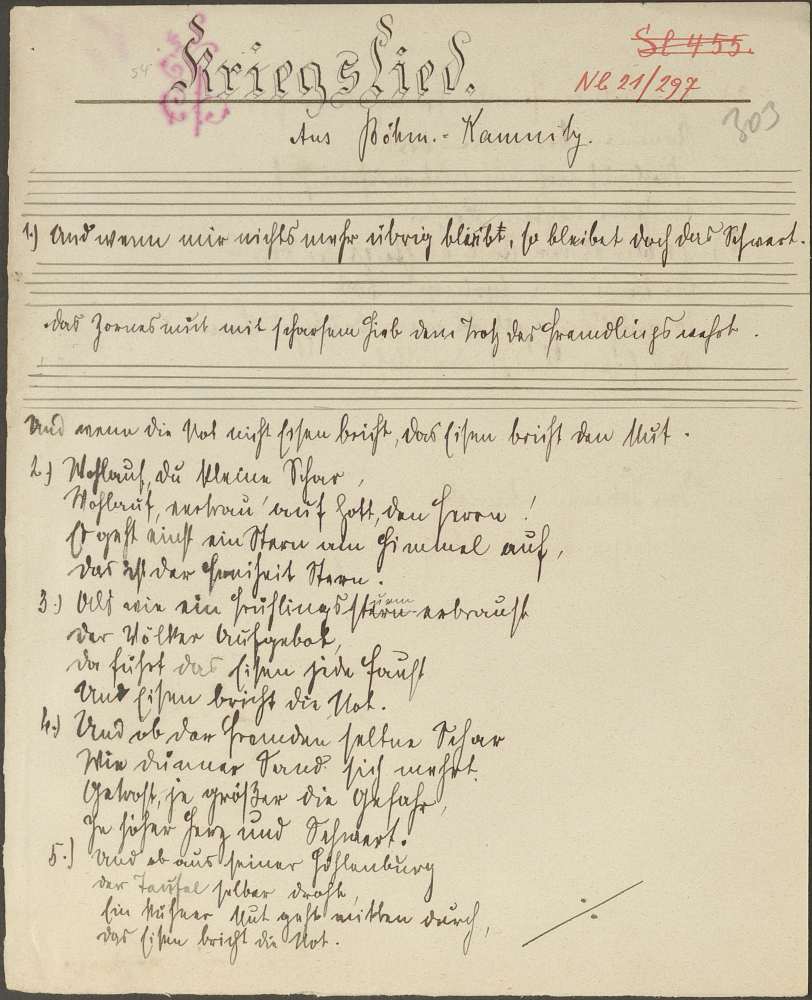 Kriegslied.
Sl 455.
54
Nl. 21/297
Aus Böhm.-Kamnitz.
303
1.) Und wenn mir nichts mehr übrig bleibt, so bleibet doch das Schwert.
das Zornesmut mit scharfem Hieb dem Trotz des Fremdlings wehrt.
Und wenn die Not nicht Eisen bricht, das Eisen bricht den Mut.
2.) Wohlauf, du kleine Schar,
Wohlauf, vertrau' auf Gott, den Herrn!
Es geht einst ein Stern am Himmel auf,
das ist der Freiheit Stern.
3.) Als wie ein Frühlingssturm erbraust
der Völker Aufgebot,
da führt das Eisen jede Faust
Und Eisen bricht die Not.
4.) Und ob der Fremden seltne Schar
Wie dünner Sand sich mehrt.
Getrost, je größer die Gefahr,
Je höher Herz und Schwert.
5.) Und ob aus seiner Höhlenburg
der Teufel selber droht,
Ein kühner Mut geht mitten durch,
das Eisen bricht die Not.